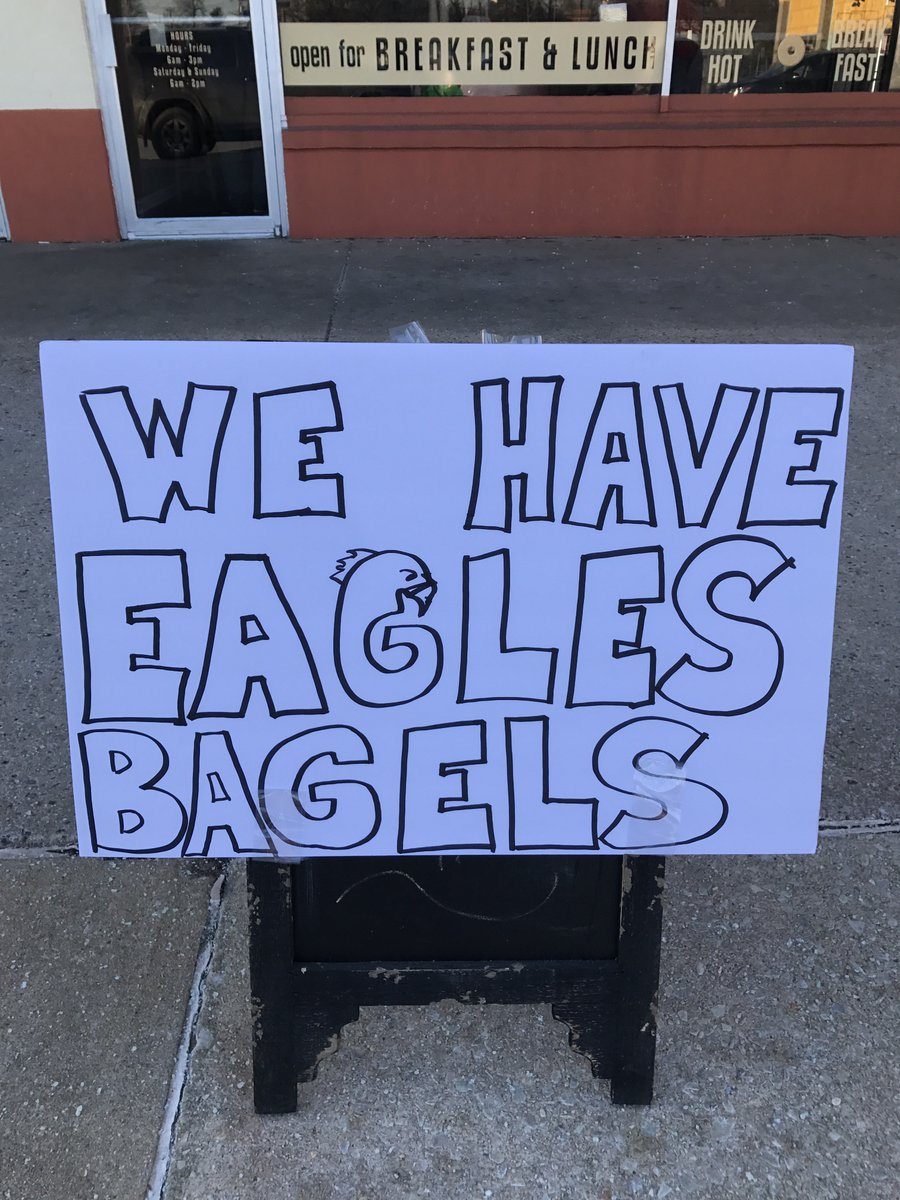 HOURS
Monday - Friday
6am - 3pm
Saturday & Sunday
6am - 2pm
open for BREAKFAST & LUNCH
DRINK
HOT
BREAK
FAST!
WE HAVE
EAGLES
BAGELS